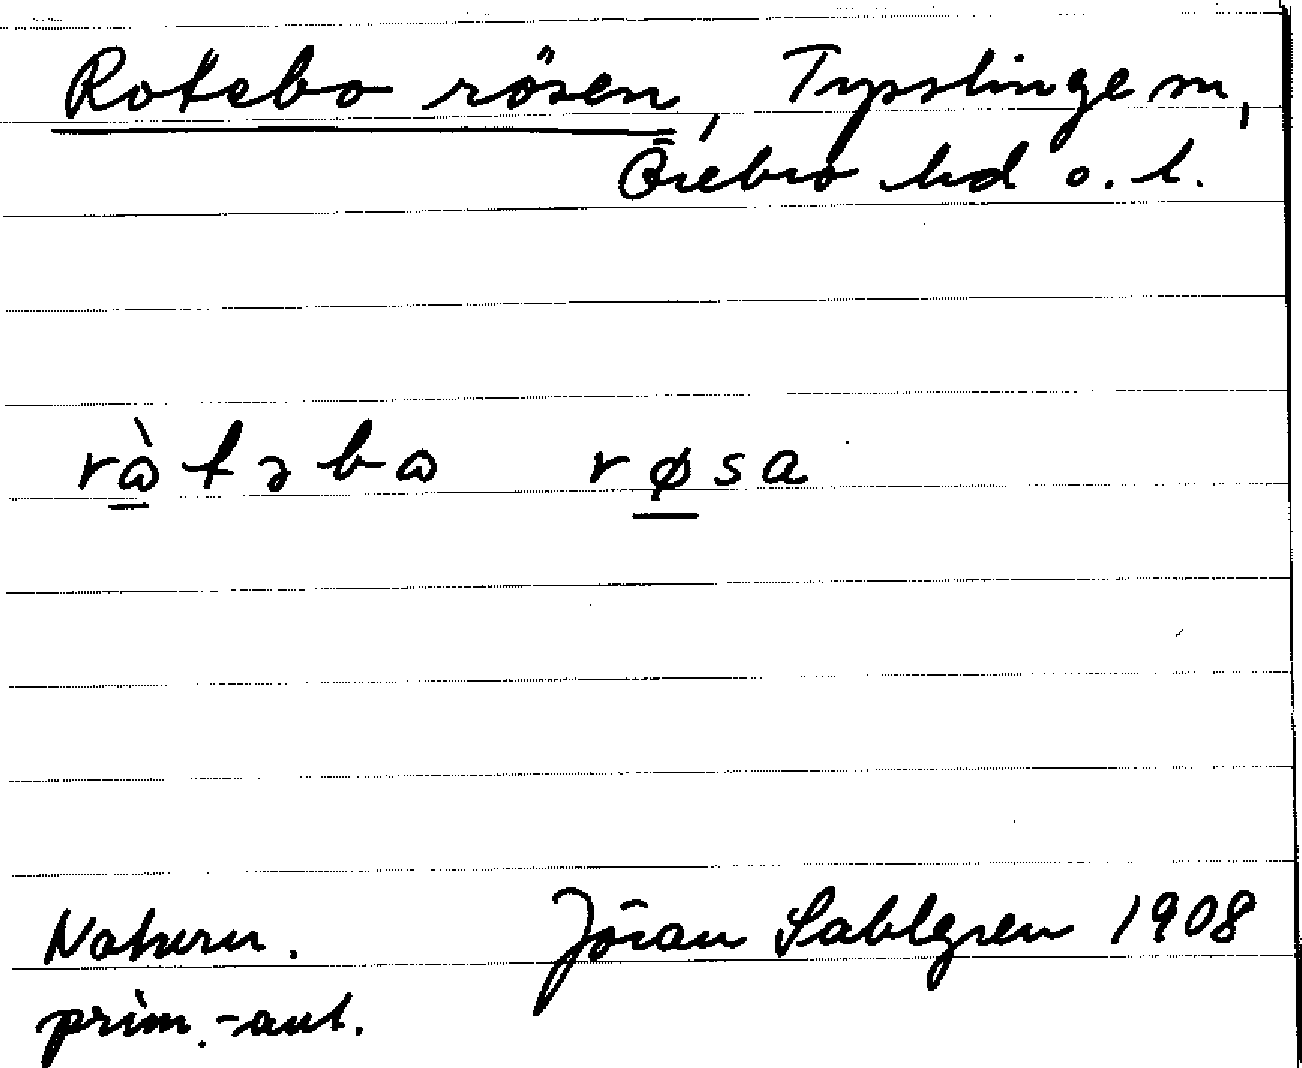 Rotebo rösen, Tysslinge sn,
Örebro hd o. l.
rὼtəbɷ røsa
Naturn.
Jöran Sahlgren 1908
prim.-ant.